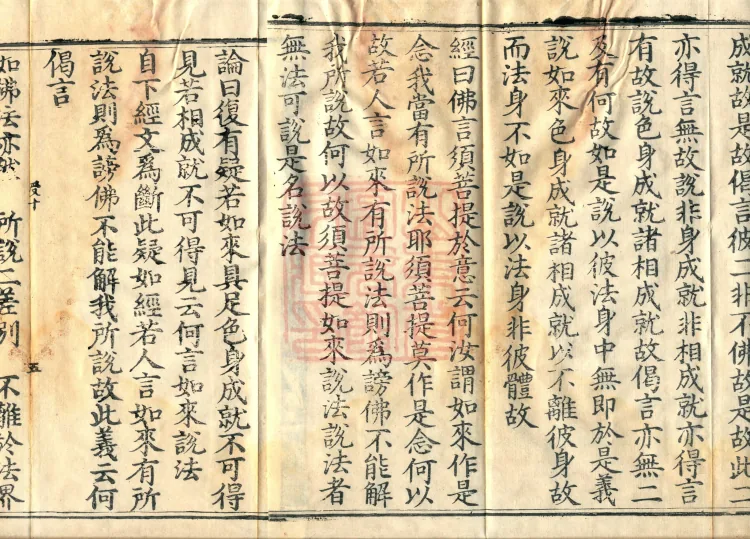 成就故是故偈言彼二非不佛故是故此二
亦得言無故說非身成就非相成就亦得言
有故說色身成就諸相成就故偈言亦無二
及有何故如是說以彼法身中無即於是義
說如來色身成就諸相成就以不離彼身故
而法身不如是說以法身非彼體故
經曰佛言須菩提於意云何汝謂如來作是
念我當有所說法耶須菩提莫作是念何以
故若人言如來有所說法則為謗佛不能解
我所說故何以故須菩提如來說法說法者
無法可說是名說法
論曰復有疑若如來具足色身成就不可得
見若相成就不可得見云何言如來說法
自下經文為斷此疑如經若人言如來有所
說法則為謗佛不能解我所說故此義云何
偈言
十 五
如佛法亦然 所說二差別 不離於法界